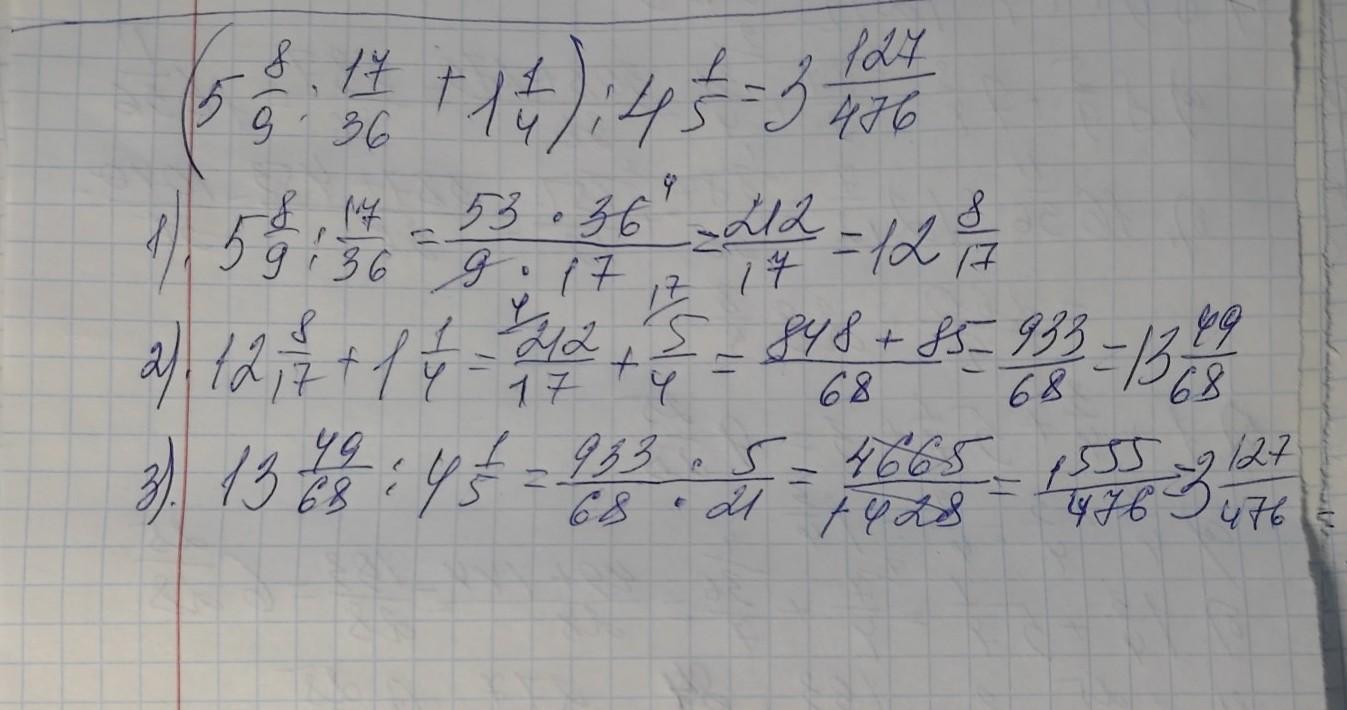 (5 8/9 : 17/36 + 1 1/4) : 4 1/5 = 3 127/476
1). 5 8/9 : 17/36 = 53 · 36 4 / 9 · 17 = 212/17 = 12 8/17
2). 12 8/17 + 1 1/4 = 4/ 212/17 + 17/ 5/4 = 848 + 85 / 68 = 933/68 = 13 49/68
3). 13 49/68 : 4 1/5 = 933 · 5 / 68 · 21 = 4665/1428 = 1555/476 = 3 127/476